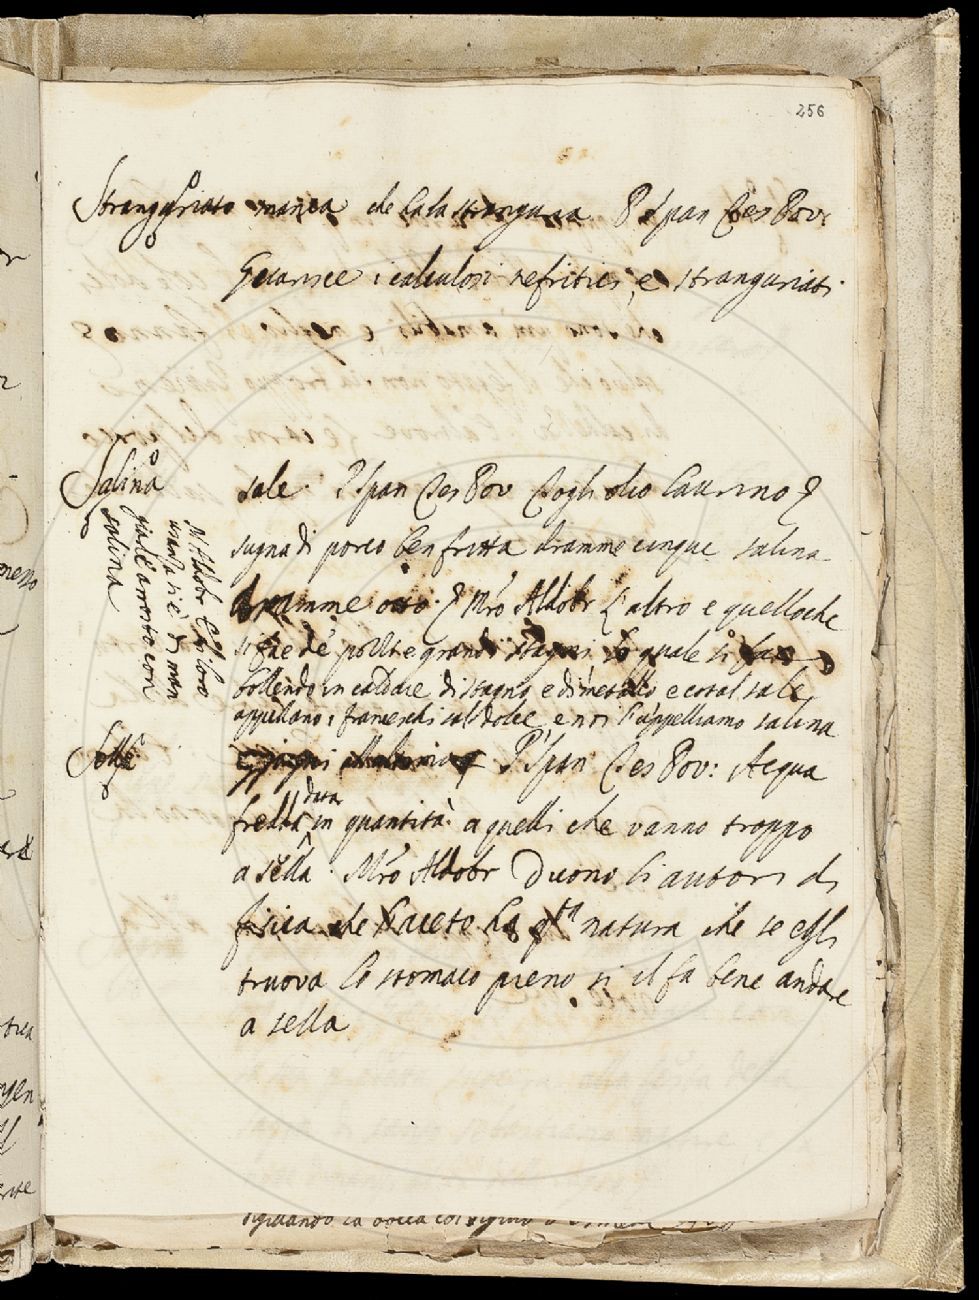 256
Stranguriato manca che ha la stranguria P Span Ces Pov:
Guarisce i calculosi nefritici, e stranguriati
Salina sale. P Span Ces Pov Togli olio laurino
sugna di porco ben fritta dramme cinque salina
dramme otto. Mro Aldobr L'altro e quello che
si fae de grandi stagni, lo quale si fae
bollendo in caldaie di stagno, e di metallo e cotal sale
appellano i franceschi sal dolce, e noi l'appelliamo salina
gialle arrosto con
salina
Mr Aldobr
usanza si è di man
Sella P Span Ces Pov: Acqua
fredda data in quantità a quelli che vanno troppo
a sella. Mro Aldobr Dicono li autori di
fisica che l'aceto ha qta natura che se egli
truova lo stomaco pieno si il fa bene andare
a sella